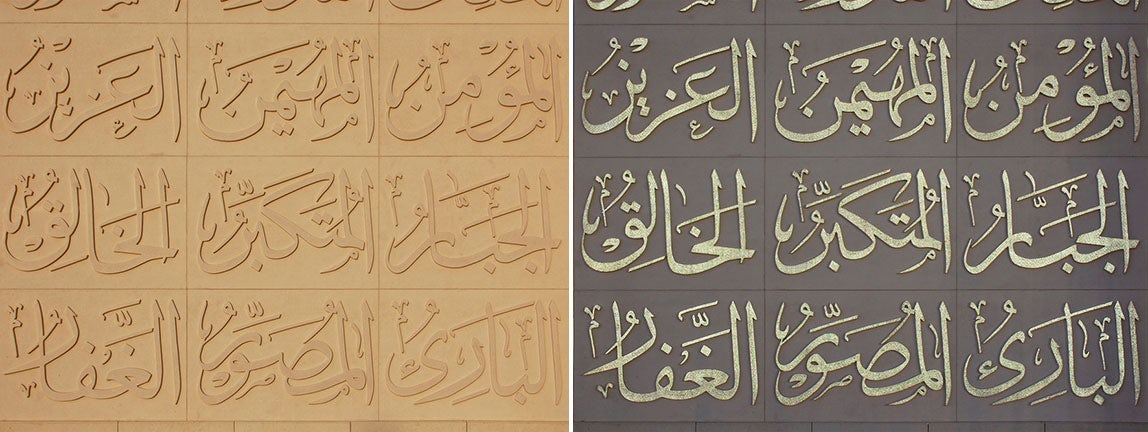 المؤمن المهيمن العزيز المؤمن المهيمن العزيز
الجبار المتكبر الخالق الجبار المتكبر الخالق
البارئ المصور الغفار البارئ المصور الغفار